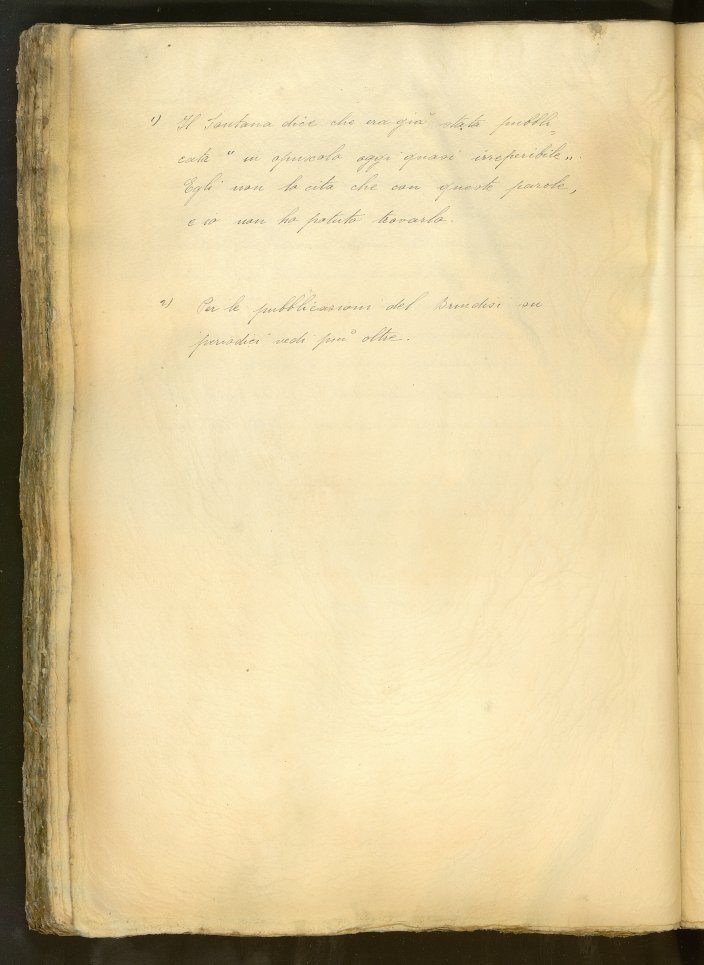 1) Il Santana dice che era già stata pubbli=
cata " in opuscolo oggi quasi irreperibile „.
Egli non lo cita che con queste parole,
e io non ho potuto trovarlo.
2) Per le pubblicazioni del Brindisi su
periodici vedi più oltre.